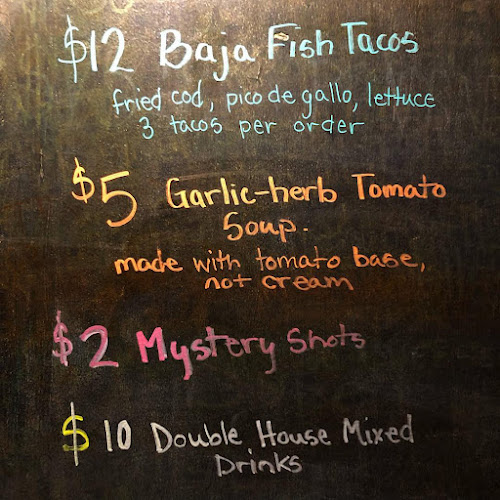 $12 Baja Fish Tacos
fried cod, pico de gallo, lettuce
3 tacos per order
$5 Garlic-herb Tomato
Soup.
made with tomato base,
not cream
$2 Mystery Shots
$10 Double House Mixed
Drinks